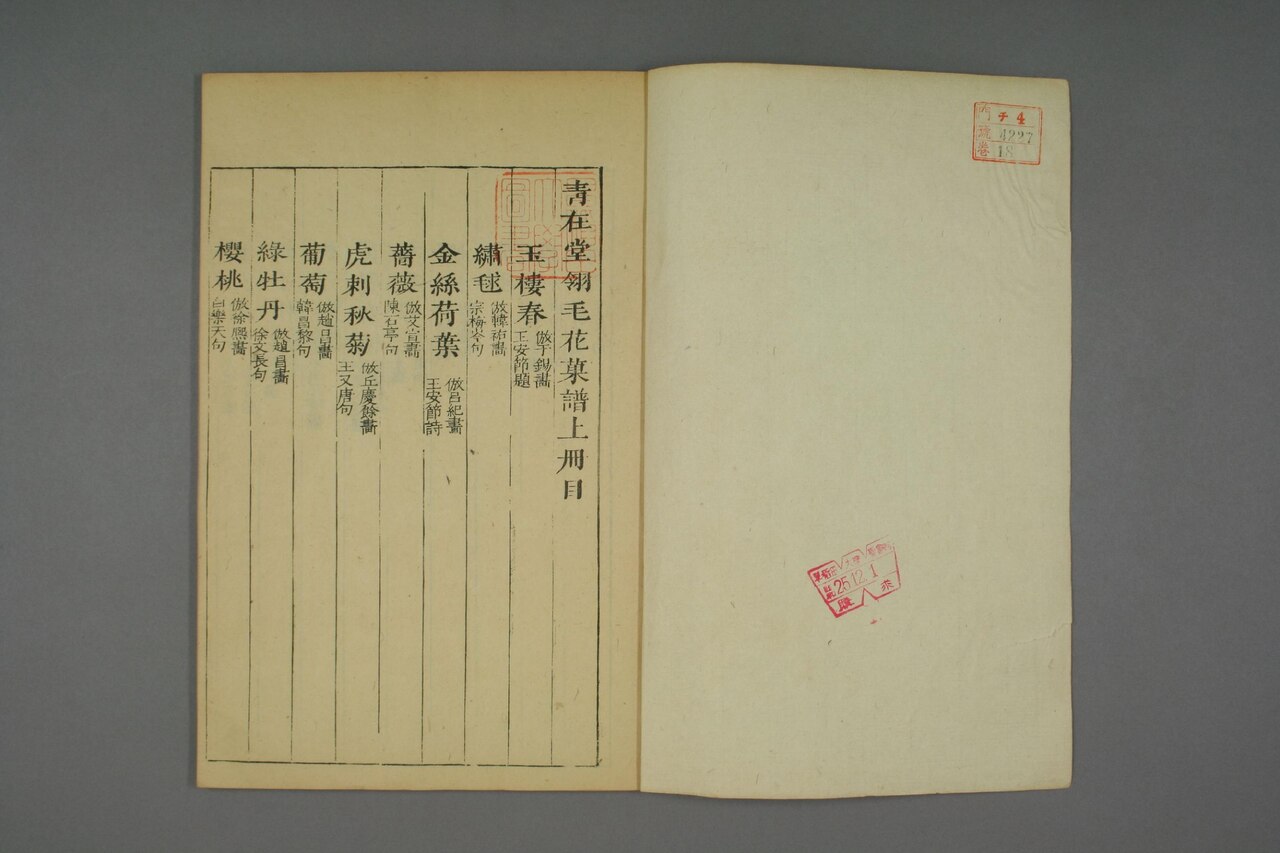 門 チ 4
號 4227
卷 18
25.12.1
購 求
青在堂翎毛花菓譜上冊目
玉樓春 倣于錫畫
王安節題
繡毬 倣韓祐畫
宗梅岑句
金絲荷葉 倣呂紀畫
王安節詩
薔薇 倣艾宣畫
陳石亭句
虎刺秋菊 倣丘慶餘畫
王又唐句
葡萄 倣趙昌畫
韓昌黎句
綠牡丹 倣趙昌畫
徐文長句
櫻桃 倣徐熙畫
白樂天句